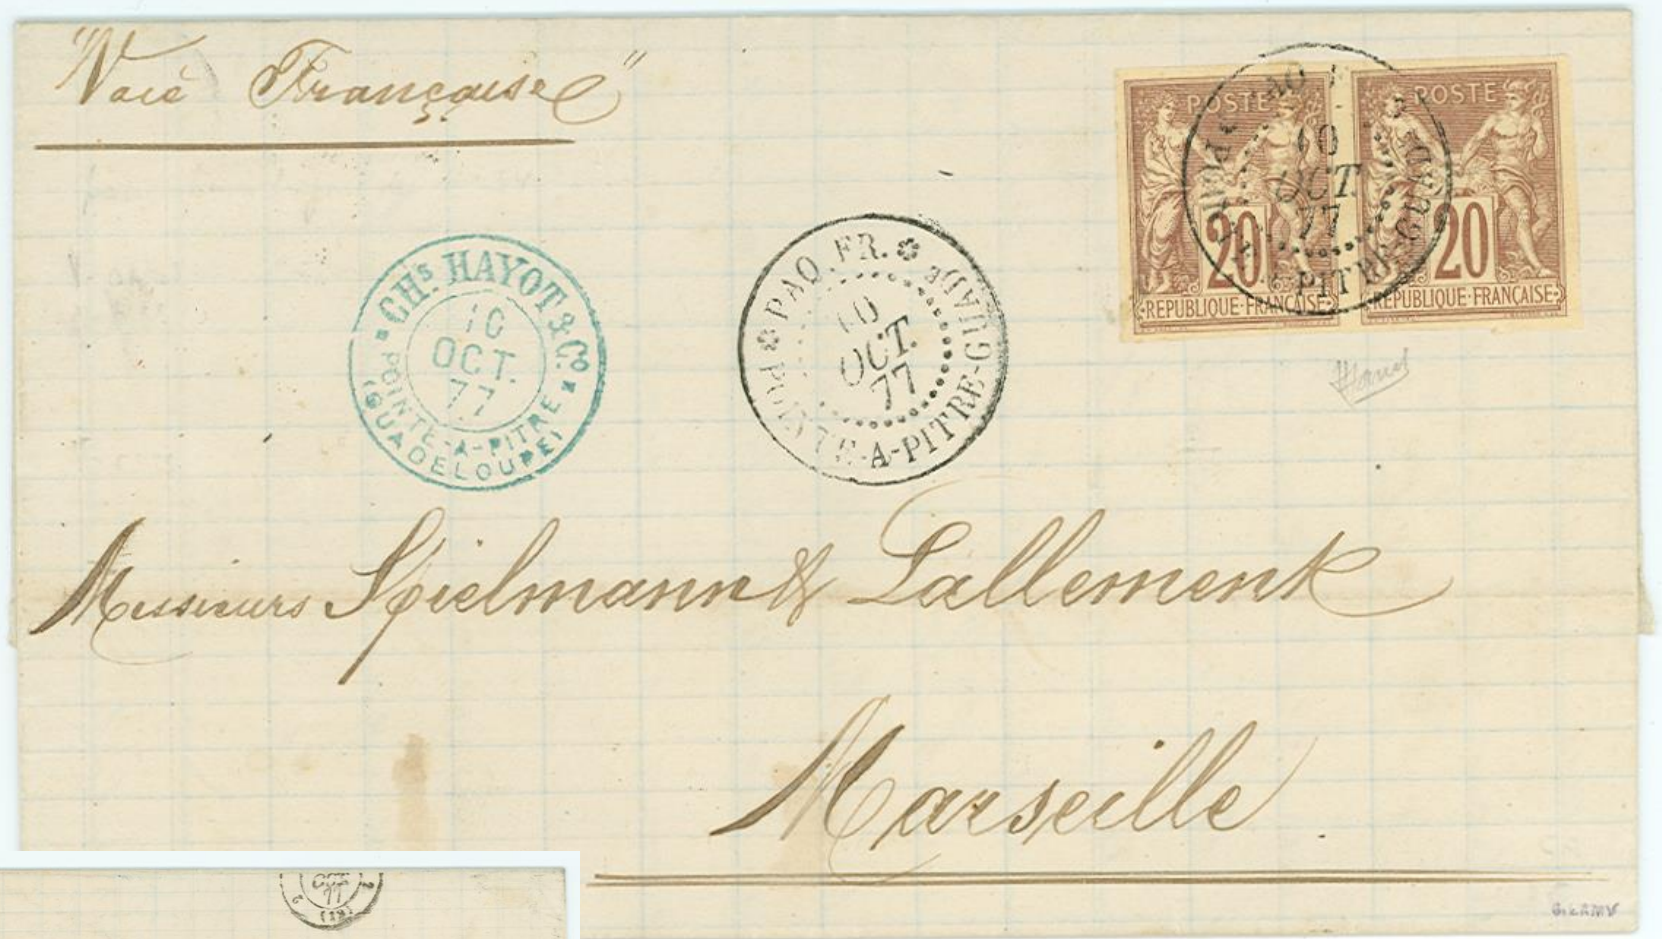 "Voie Française"
POSTE
20
REPUBLIQUE-FRANÇAISE
POSTE
20
REPUBLIQUE-FRANÇAISE
10
OCT.
77
PITRE-GUAD
CHS HAYOT & CO.
10
OCT.
77
POINTE-A-PITRE
(GUADELOUPE)
PAQ. FR.
10
OCT.
77
POINTE-A-PITRE-GUADPE
Messieurs Spielmann & Lallement
Marseille
OCT
77